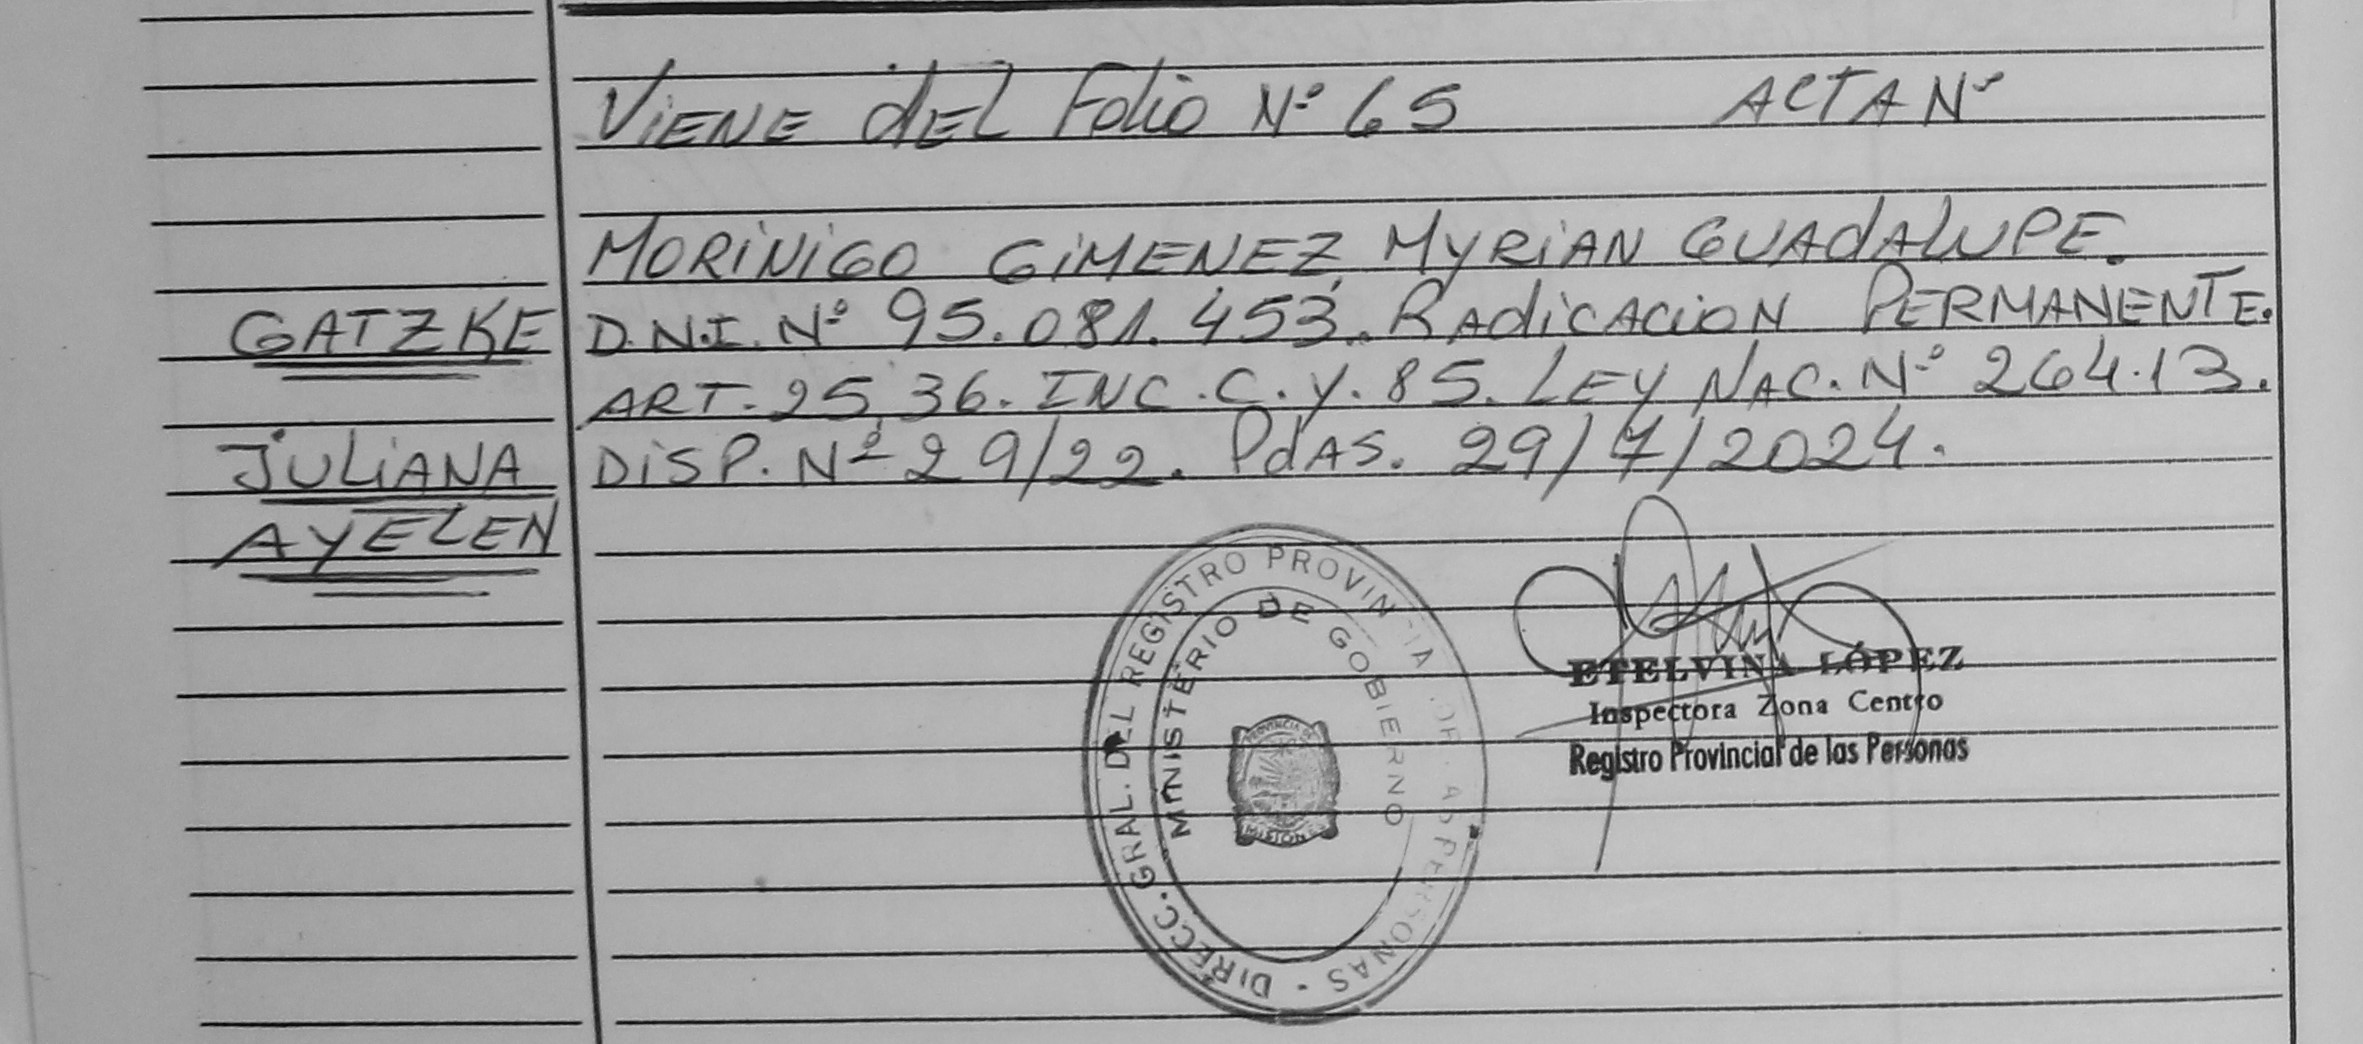 VIENE dEL Folio Nº 65 ACTA Nº
MORINIGO GIMENEZ, MYRIAN GUADALUPE.
GATZKE D.N.I. Nº 95.081.453. RAdiCACION PERMANENTE.
ART. 25,36. INC. C. Y. 85. LEY NAC. Nº 264.13.
JULIANA DISP. Nº 29/22. PdAS. 29/7/2024.
AYELEN
DIRECC. GRAL. DEL REGISTRO PROVINCIAL DE LAS PERSONAS -
MINISTERIO DE GOBIERNO
PROVINCIA DE
MISIONES
ETELVINA LÓPEZ
Inspectora Zona Centro
Registro Provincial de las Personas